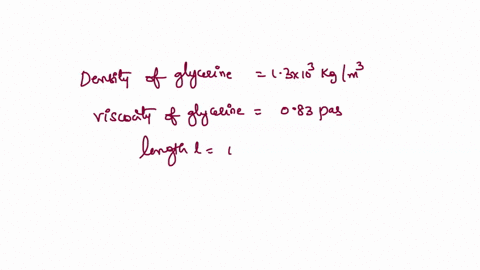 Density of glycerine = 1.3x10³ Kg/m³
viscocity of glycerine = 0.83 pas
length l = (